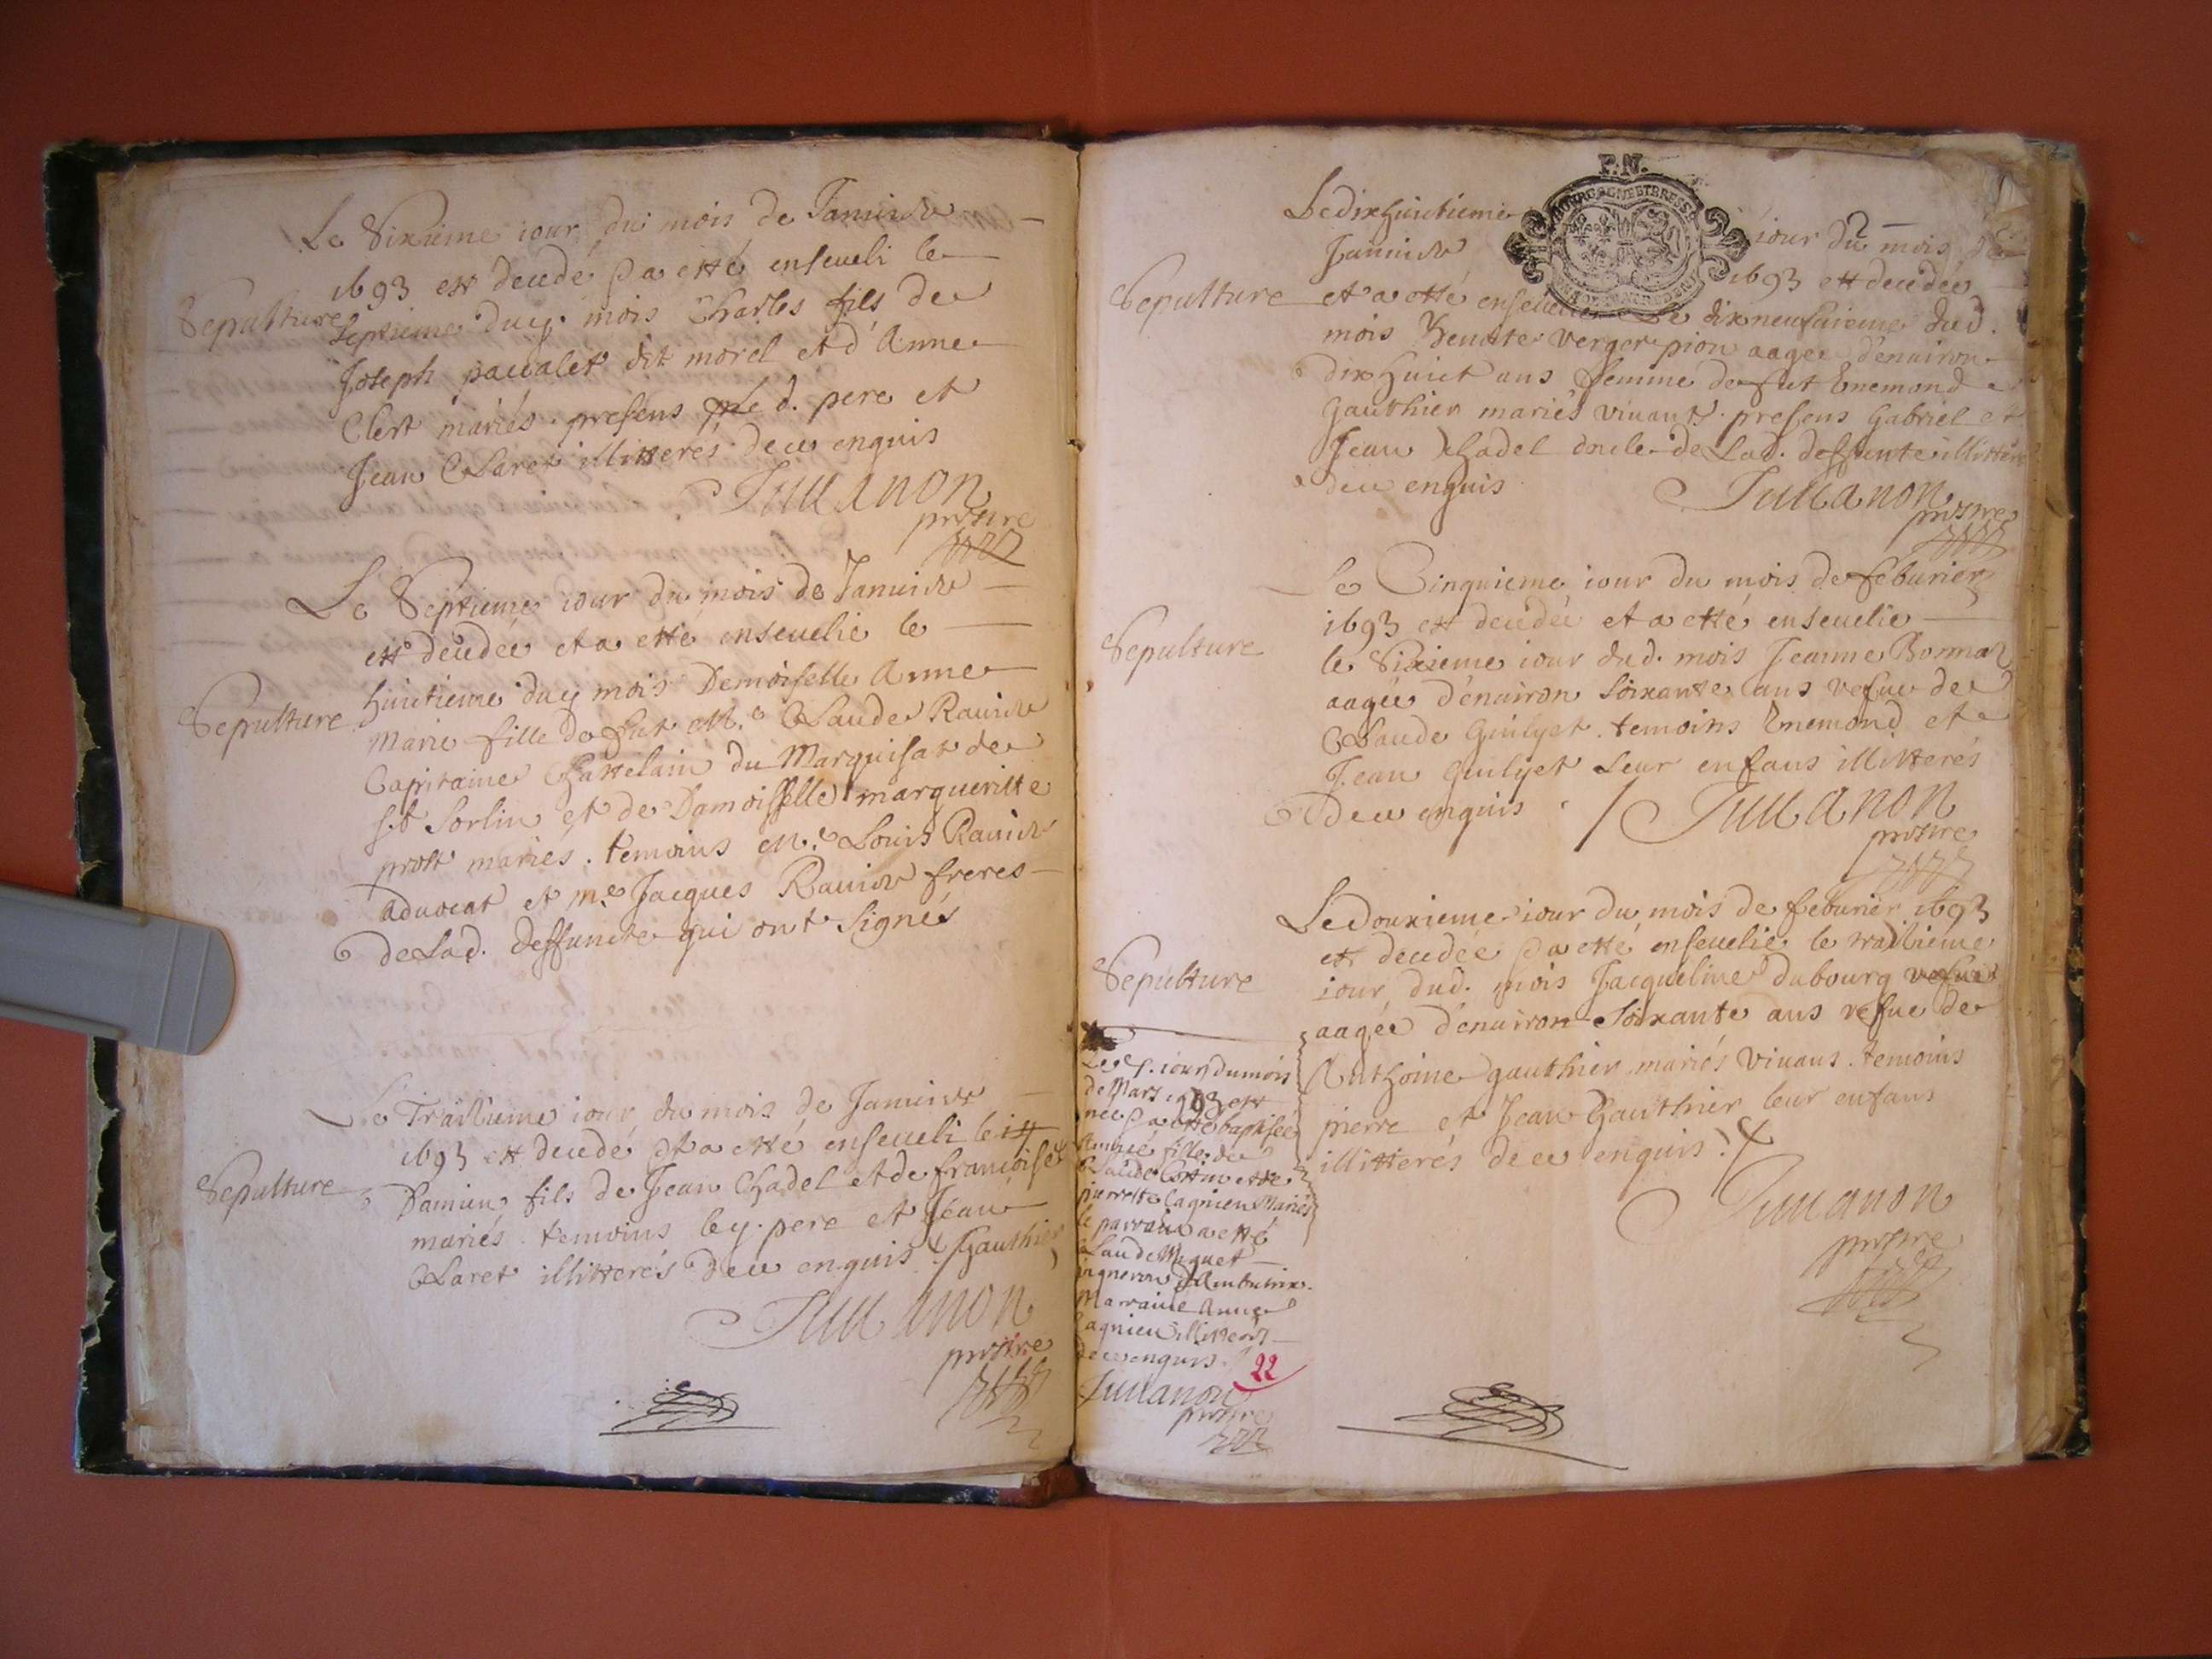 Le Sixieme iour du mois de Januier
1693 est decedé & a esté enseueli le
Sepulture
septieme duy. mois Charles fils de
Joseph pacalet dit morel et d'Anne
Clert mariés. presens le d. pere et
Jean Claret illitterés de ce enquis
Jullanon
prestre
Le Septieme iour du mois de Januier
est decedée et a esté enseuelie le
Sepulture
huictieme duy mois Demoiselle Anne
Marie fille de fut Mr. Claude Rauier
Capitaine Chastelain du Marquisat de
St Sorlin et de Damoiselle margueritte
prost mariés. temoins Mr. Louis Rauier
aduocat et me. Jacques Rauier freres
de Lad. deffuncte qui ont signés
Le Traisieme iour du mois de Januier
1693 est decedé et a esté enseueli le 14
Sepulture
Damien fils de Jean Chadel et de francoise
mariés. temoins ley. pere et Jean
Claret illitterés de ce enquis. Gauthier
Jullanon
prestre
F.N.
Le dix huictieme iour du mois de
Januier 1693 est decedée
Sepulture
et a esté enseuelie Le dix neufuieme dud.
mois Benoite Verger pion aagée d'enuiron
dix huict ans femme de fut Enemond
Gauthier mariés viuants. presens Gabriel et
Jean Chadel oncle de Lad. deffunte illitterés
de ce enquis
Jullanon
prestre
Le Cinquieme iour du mois de feburier
1693 est decedée et a esté enseuelie
Sepulture
le Sixieme iour dud. mois Jeanne Bonnar
aagée d'enuiron soixante ans vefue de
Claude Guilyet. temoins Enemond et
Jean Guilyet Leur enfans illitterés
de ce enquis
Jullanon
prestre
Le douxieme iour du mois de feburier 1693
est decedée & a esté enseuelie le traisieme
Sepulture
iour dud. mois Jacqueline dubourg vefue
aagée d'enuiron soixante ans vefue de
Anthoine gauthier mariés viuans. temoins
pierre et Jean Gauthier leur enfans
illitterés de ce enquis.
Jullanon
prestre
Le iour du mois
de Mars 1693 est
née & a esté baptisée
fille de
Claude et de
pierrette Cagnieu Mariés
le parrain a esté
Claude Muguet
vigneron d'Ambutrix.
Marraine Anne
Cagnieu illitterés
de ce enquis.
22
Jullanon
prestre